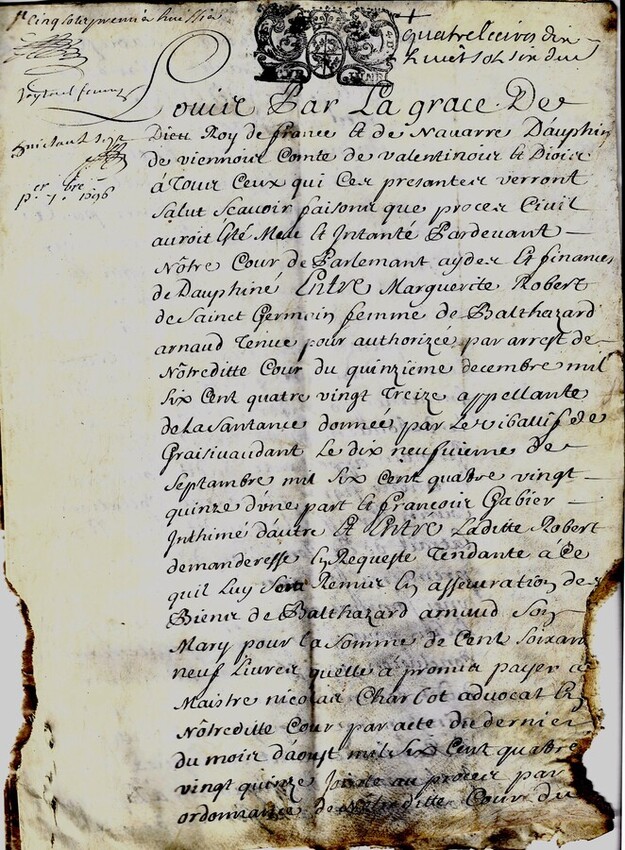 quatre
Louis Par La grace De
Dieu Roy de france Et de Navarre Dauphin
de viennois Comte de valentinois Et Diois
à Tous Ceux qui Ces presantes verront
salut scavoir faisons que proces Civil
auroit Esté Meu Et Intanté Pardevant
Nôtre Cour de Parlemant aydes Et finances
de Dauphiné Entre Marguerite Robert
de Sainct Germain femme de Balthazard
arnaud Tenue pour authorizée par arrest de
Nôtreditte Cour du quinzième decembre mil
six Cent quatre vingt Treize appellante
de La Santance donnée par Le vibaillif de
Graisivaudant Le dix neufuieme de
Septambre mil six Cent quatre vingt
quinze d'une part Et francois Gabier
Inthimé d'autre Et Entre Laditte Robert
demanderesse En Requeste Tendante à Ce
quil Luy Soit Remis En asseuration des
Biens de Balthazard arnaud Son
Mary pour La Somme de Cent Soixante
neuf Livres quelle à promis payer à
Maistre nicolas Charbot advocat En
Nôtreditte Cour par acte du dernier
du mois d'aoust mil six Cent quatre
vingt quinze Jointe au proces par
ordonnance de Nôtreditte Cour du